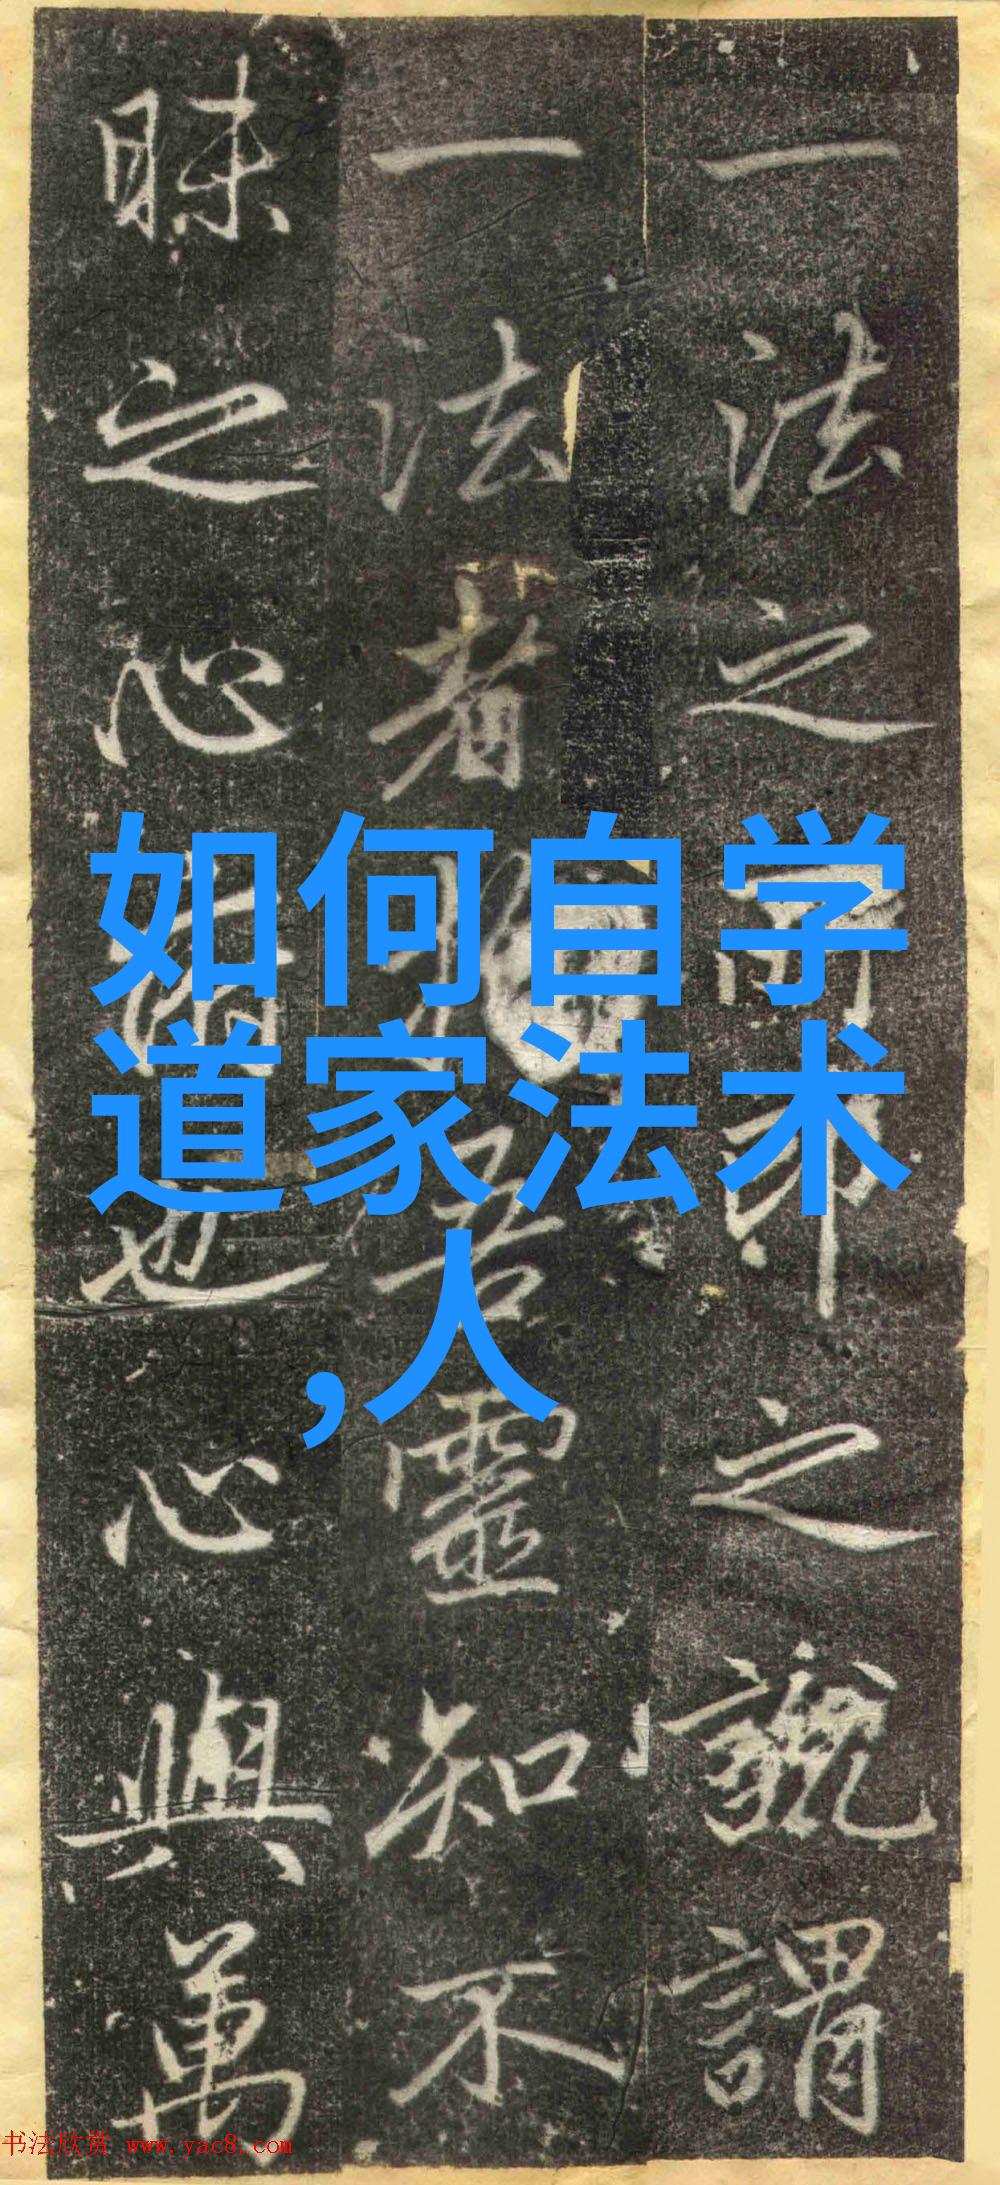 一法之
之號謂
一法者
吾靈知不
昧之心
也心與萬
如何自学
道家法术
,人
书法欣赏 www.yac8.com